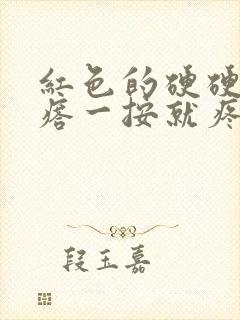 紅色的硬硬
痞一按就疼
段玉嘉